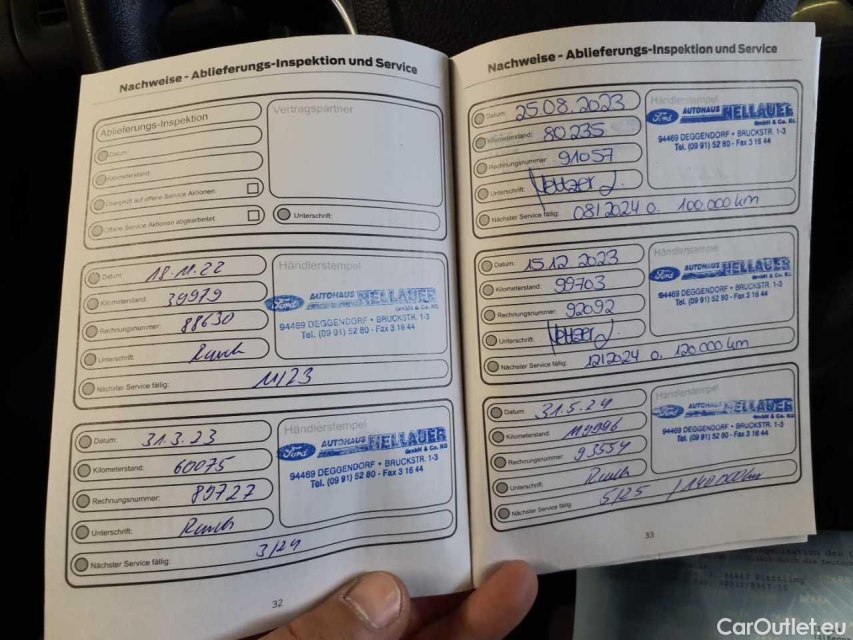 Nachweise - Ablieferungs-Inspektion und Service
Ablieferungs-Inspektion
Datum:
Kilometerstand:
Überprüft auf offene Service Aktionen:
Offene Service Aktionen abgearbeitet:
Vertragspartner
Unterschrift:
Datum: 18.11.22
Kilometerstand: 39979
Rechnungsnummer: 88630
Unterschrift:
Nächster Service fällig: 11/23
Händlerstempel
Ford AUTOHAUS HELLAUER
GmbH & Co. KG
94469 DEGGENDORF • BRUCKSTR. 1-3
Tel. (09 91) 52 80 - Fax 3 16 44
Datum: 31.3.23
Kilometerstand: 60075
Rechnungsnummer: 89727
Unterschrift:
Nächster Service fällig: 3/24
Händlerstempel
Ford AUTOHAUS HELLAUER
GmbH & Co. KG
94469 DEGGENDORF • BRUCKSTR. 1-3
Tel. (09 91) 52 80 - Fax 3 16 44
32
Nachweise - Ablieferungs-Inspektion und Service
Datum: 25.08.2023
Kilometerstand: 80235
Rechnungsnummer: 91057
Unterschrift:
Nächster Service fällig: 08/2024 o. 100.000 km
Händlerstempel
Ford AUTOHAUS HELLAUER
GmbH & Co. KG
94469 DEGGENDORF • BRUCKSTR. 1-3
Tel. (09 91) 52 80 - Fax 3 16 44
Datum: 15.12.2023
Kilometerstand: 99703
Rechnungsnummer: 92092
Unterschrift:
Nächster Service fällig: 12/2024 o. 120.000 km
Händlerstempel
Ford AUTOHAUS HELLAUER
GmbH & Co. KG
94469 DEGGENDORF • BRUCKSTR. 1-3
Tel. (09 91) 52 80 - Fax 3 16 44
Datum: 31.5.24
Kilometerstand: 119996
Rechnungsnummer: 93554
Unterschrift:
Nächster Service fällig: 5/25 / 140000km
Händlerstempel
Ford AUTOHAUS HELLAUER
GmbH & Co. KG
94469 DEGGENDORF • BRUCKSTR. 1-3
Tel. (09 91) 52 80 - Fax 3 16 44
33
CarOutlet.eu